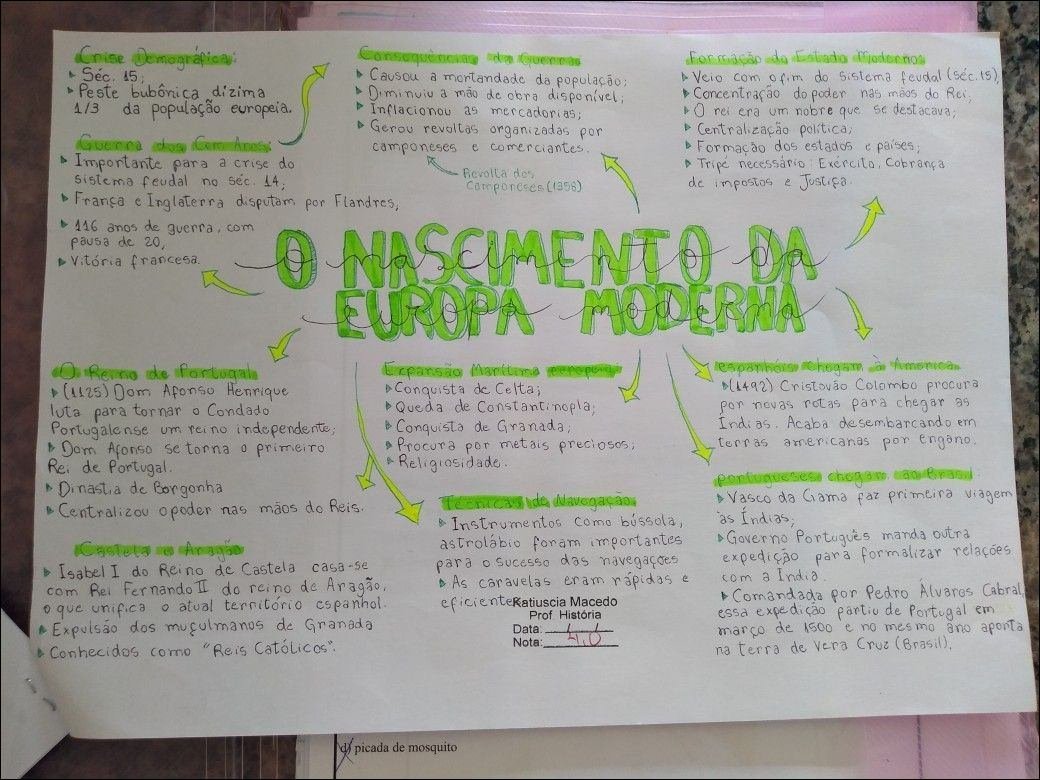 Crise Demográfica:
Séc. 15;
Peste bubônica dizima
1/3 da população europeia.
Guerra dos Cem Anos:
Importante para a crise do
sistema feudal no séc. 14;
França e Inglaterra disputam por Flandres,
116 anos de guerra, com
pausa de 20,
Vitória francesa.
Consequências da Guerra
Causou a mortandade da população;
Diminuiu a mão de obra disponível;
Inflacionou as mercadorias;
Gerou revoltas organizadas por
camponeses e comerciantes.
Revolta dos
Camponeses (1358)
Formação do Estado Moderno:
Veio com o fim do sistema feudal (séc. 15),
Concentração do poder nas mãos do Rei;
O rei era um nobre que se destacava;
Centralização política;
Formação dos estados e países;
Tripé necessário: Exército, Cobrança
de impostos e Justiça.
O NASCIMENTO DA
o nascimento da
EUROPA MODERNA
europa moderna
O Reino de Portugal
(1125) Dom Afonso Henrique
luta para tornar o Condado
Portugalense um reino independente;
Dom Afonso se torna o primeiro
Rei de Portugal.
Dinastia de Borgonha
Centralizou o poder nas mãos do Reis.
Castela e Aragão
Isabel I do Reino de Castela casa-se
com Rei Fernando II do reino de Aragão,
o que unifica o atual território espanhol.
Expulsão dos muçulmanos de Granada
Conhecidos como "Reis Católicos".
Expansão Marítima europeia
Conquista de Celta;
Queda de Constantinopla;
Conquista de Granada;
Procura por metais preciosos;
Religiosidade.
Técnicas de Navegação
Instrumentos como bússola,
astrolábio foram importantes
para o sucesso das navegações
As caravelas eram rápidas e
eficientes
Katiuscia Macedo
Prof História
Data:
Nota: 4.0
espanhóis chegam à América
(1492) Cristovão Colombo procura
por novas rotas para chegar as
Índias. Acaba desembarcando em
terras americanas por engano.
portugueses chegam ao Brasil
Vasco da Gama faz primeira viagem
às Índias;
Governo Português manda outra
expedição para formalizar relações
com a Índia.
Comandada por Pedro Álvaros Cabral,
essa expedição partiu de Portugal em
março de 1500 e no mesmo ano aponta
na terra de Vera Cruz (Brasil).
d) picada de mosquito